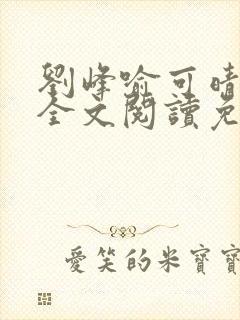 劉峰喻可晴
全文閱讀免
愛笑的米寶寶